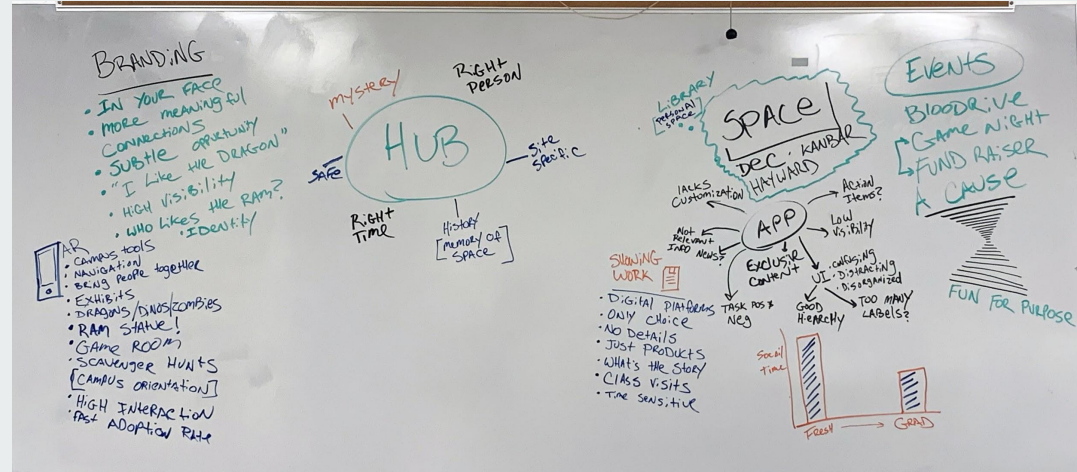 BRANDING
• IN YOUR FACE
• MORE MEANINGFUL
CONNECTIONS
• SUBTLE OPPORTUNITY
• "I LIKE THE DRAGON"
• HIGH VISIBILITY
• WHO LIKES THE RAM?
• IDENTITY
AR
• CAMPUS TOOLS
• NAVIGATION
• BRING PEOPLE TOGETHER
• EXHIBITS
• DRAGONS/DINOS/ZOMBIES
• RAM STATUE!
• GAME ROOM
• SCAVENGER HUNTS
[CAMPUS ORIENTATION]
• HIGH INTERACTION
• FAST ADOPTION RATE
MYSTERY
RIGHT
PERSON
HUB
SAFE
SITE
SPECIFIC
RIGHT
TIME
HISTORY
[MEMORY OF
SPACE]
LIBRARY
[PERSONAL
SPACE]
SPACE
DEC. KANBAR
HAYWARD
LACKS
CUSTOMIZATION
ACTION
ITEMS?
APP
LOW
VISIBILITY
NOT
RELEVANT
INFO NEWS?
EXCLUSIVE
CONTENT
UI
• CONFUSING
• DISTRACTING
• DISORGANIZED
TASK POS &
NEG
GOOD
HIERARCHY
TOO MANY
LABELS?
SHOWING
WORK
• DIGITAL PLATFORMS
• ONLY CHOICE
• NO DETAILS
• JUST PRODUCTS
• WHAT'S THE STORY
• CLASS VISITS
• TIME SENSITIVE
SOCIAL
TIME
FRESH → GRAD
EVENTS
BLOODRIVE
GAME NIGHT
FUND RAISER
A CAUSE
FUN FOR PURPOSE